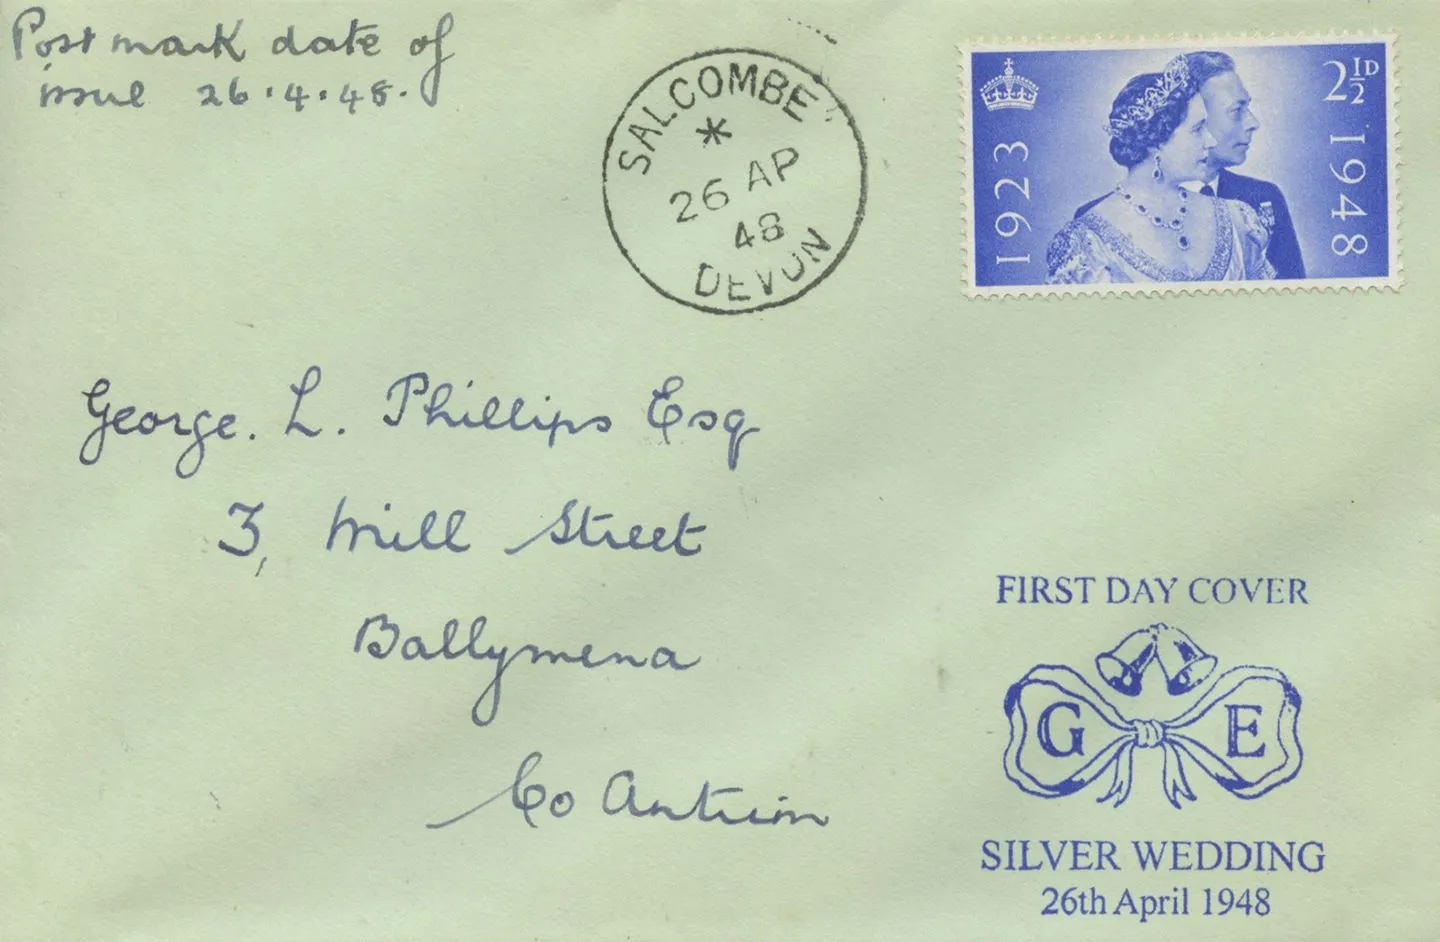 Post mark date of
issue 26.4.48.
SALCOMBE
*
26 AP
48
DEVON
1923
2½D
1948
George. L. Phillips Esq
3, Mill Street
Ballymena
Co Antrim
FIRST DAY COVER
G E
SILVER WEDDING
26th April 1948